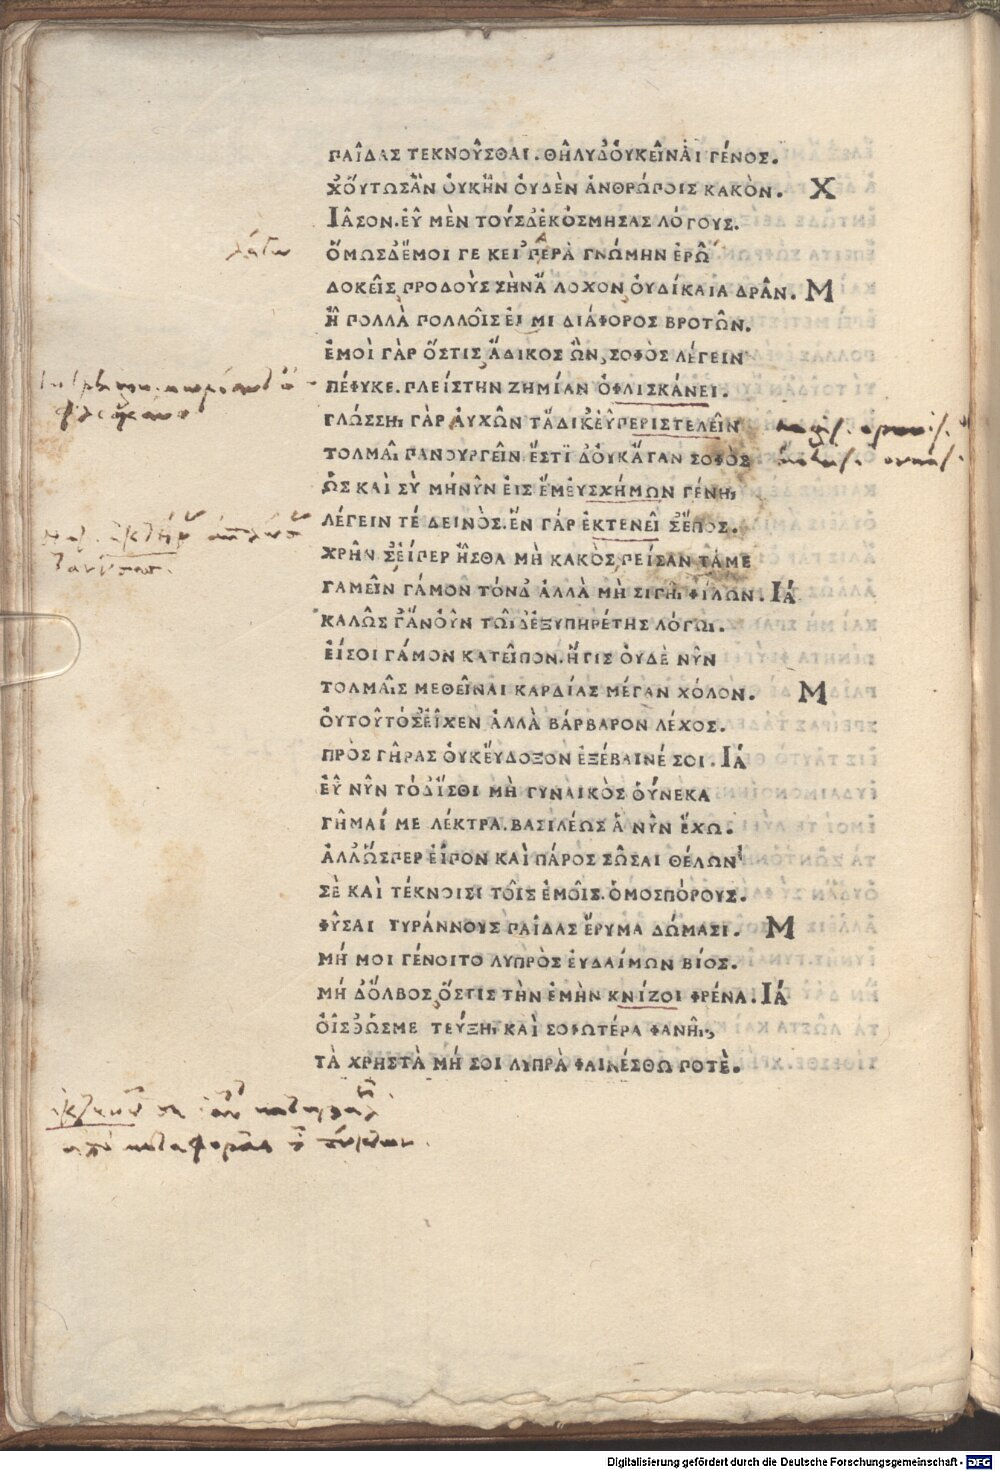 ΠΑῖΔΑΣ ΤΕΚΝΟῦΣΘΑΙ. ΘῆΛΥΔ᾽ΟὐΚΕἶΝΑΙ ΓέΝΟΣ.
ΧΟὔΤΩΣἂΝ ΟὐΚἦΝ ΟὐΔὲΝ ἀΝΘΡώΠΟΙΣ ΚΑΚὸΝ. Χ
ἸᾶΣΟΝ. Εὖ ΜὲΝ ΤΟύΣΔ᾽ἐΚόΣΜΗΣΑΣ ΛόΓΟΥΣ.
ὅΜΩΣΔ᾽ἔΜΟΙ ΓΕ ΚΕἰ ΠΑΡὰ ΓΝώΜΗΝ ἐΡῶ
ΔΟΚΕῖΣ ΠΡΟΔΟὺΣ ΣὴΝ ἄΛΟΧΟΝ, ΟὐΔίΚΑΙΑ ΔΡᾶΝ. Μ
ἦ ΠΟΛΛὰ ΠΟΛΛΟῖΣ ΕἰΜΙ ΔΙάΦΟΡΟΣ ΒΡΟΤῶΝ.
ἐΜΟὶ ΓὰΡ ὅΣΤΙΣ, ἄΔΙΚΟΣ ὢΝ, ΣΟΦὸΣ ΛέΓΕΙΝ
ΠέΦΥΚΕ. ΠΛΕίΣΤΗΝ ΖΗΜίΑΝ ὀΦΛΙΣΚάΝΕΙ.
ΓΛώΣΣΗι ΓὰΡ ΑὐΧῶΝ ΤἄΔΙΚ᾽ΕὖΠΕΡΙΣΤΕΛΕῖΝ
ΤΟΛΜᾶι ΠΑΝΟΥΡΓΕῖΝ ἔΣΤΙ Δ᾽ΟὐΚἄΓΑΝ ΣΟΦὸΣ
ὣΣ ΚΑὶ Σὺ ΜήΝῦΝ ΕἰΣ ἔΜ᾽ΕὐΣΧήΜΩΝ ΓέΝΗι
ΛέΓΕΙΝ Τέ ΔΕΙΝὸΣ. ἓΝ ΓάΡ ἐΚΤΕΝΕῖ Σ᾽ἔΠΟΣ.
ΧΡῆΝ Σ᾽ΕἴΠΕΡ ἦΣΘΑ Μὴ ΚΑΚὸΣ, ΠΕίΣΑΝΤά ΜΕ
ΓΑΜΕῖΝ ΓάΜΟΝ ΤόΝΔ᾽ ἀΛΛὰ Μὴ ΣΙΓῆι ΦίΛΩΝ. Ἰά
ΚΑΛῶΣ Γ᾽ἂΝΟὖΝ ΤῶιΔ᾽ἐΞΥΠΗΡέΤΗΣ ΛόΓΩι.
ΕἴΣΟΙ ΓάΜΟΝ ΚΑΤΕῖΠΟΝ. ἥΤΙΣ ΟὐΔὲ ΝῦΝ
ΤΟΛΜᾶιΣ ΜΕΘΕῖΝΑΙ ΚΑΡΔίΑΣ ΜέΓΑΝ ΧόΛΟΝ. Μ
ΟὐΤΟῦΤό Σ᾽ΕἶΧΕΝ ἀΛΛὰ ΒάΡΒΑΡΟΝ ΛέΧΟΣ.
ΠΡὸΣ ΓῆΡΑΣ ΟὐΚΕὔΔΟΞΟΝ ἐΞέΒΑΙΝέ ΣΟΙ. Ἰά
Εὖ ΝῦΝ ΤόΔ᾽ἴΣΘΙ Μὴ ΓΥΝΑΙΚὸΣ ΟὕΝΕΚΑ
ΓῆΜΑί ΜΕ ΛέΚΤΡΑ. ΒΑΣΙΛέΩΣ ἃ ΝῦΝ ἔΧΩ.
ἀΛΛ᾽ὥΣΠΕΡ ΕἶΠΟΝ ΚΑὶ ΠάΡΟΣ ΣῶΣΑΙ ΘέΛΩΝ
Σὲ ΚΑὶ ΤέΚΝΟΙΣΙ ΤΟῖΣ ἐΜΟῖΣ. ὁΜΟΣΠόΡΟΥΣ
ΦῦΣΑΙ ΤΥΡάΝΝΟΥΣ ΠΑῖΔΑΣ ἔΡΥΜΑ ΔώΜΑΣΙ. Μ
Μή ΜΟΙ ΓέΝΟΙΤΟ ΛΥΠΡὸΣ ΕὐΔΑίΜΩΝ ΒίΟΣ.
ΜήΔ᾽ὄΛΒΟΣ, ὅΣΤΙΣ ΤὴΝ ἐΜὴΝ ΚΝίΖΟΙ ΦΡέΝΑ. Ἰά
ΟἶΣΘ᾽ὥΣΜΕ ΤΕύΞΗι ΚΑὶ ΣΟΦΩΤέΡΑ ΦΑΝῆι,
Τὰ ΧΡΗΣΤὰ Μή ΣΟΙ ΛΥΠΡὰ ΦΑΙΝέΣΘΩ ΠΟΤὲ.
Digitalisierung gefördert durch die Deutsche Forschungsgemeinschaft - DFG